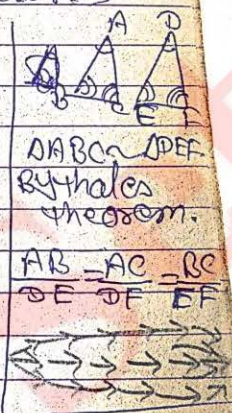 A D
B C E F
ΔABC ~ ΔDEF
By thales
theorem.
AB/DE = AC/DF = BC/EF